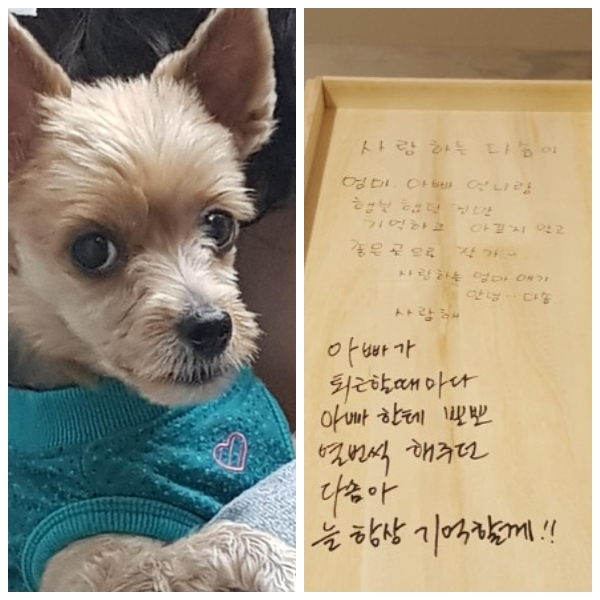 사랑하는 다솜이
엄마 아빠 언니랑
기억하고 아프지 말고
좋은곳으로 잘가~
사랑하는 엄마 애기
안녕~ 다솜
사랑해
아빠가
퇴근할때마다
아빠한테 뽀뽀
열번씩 해주던
다솜아
늘 항상 기억할께!!